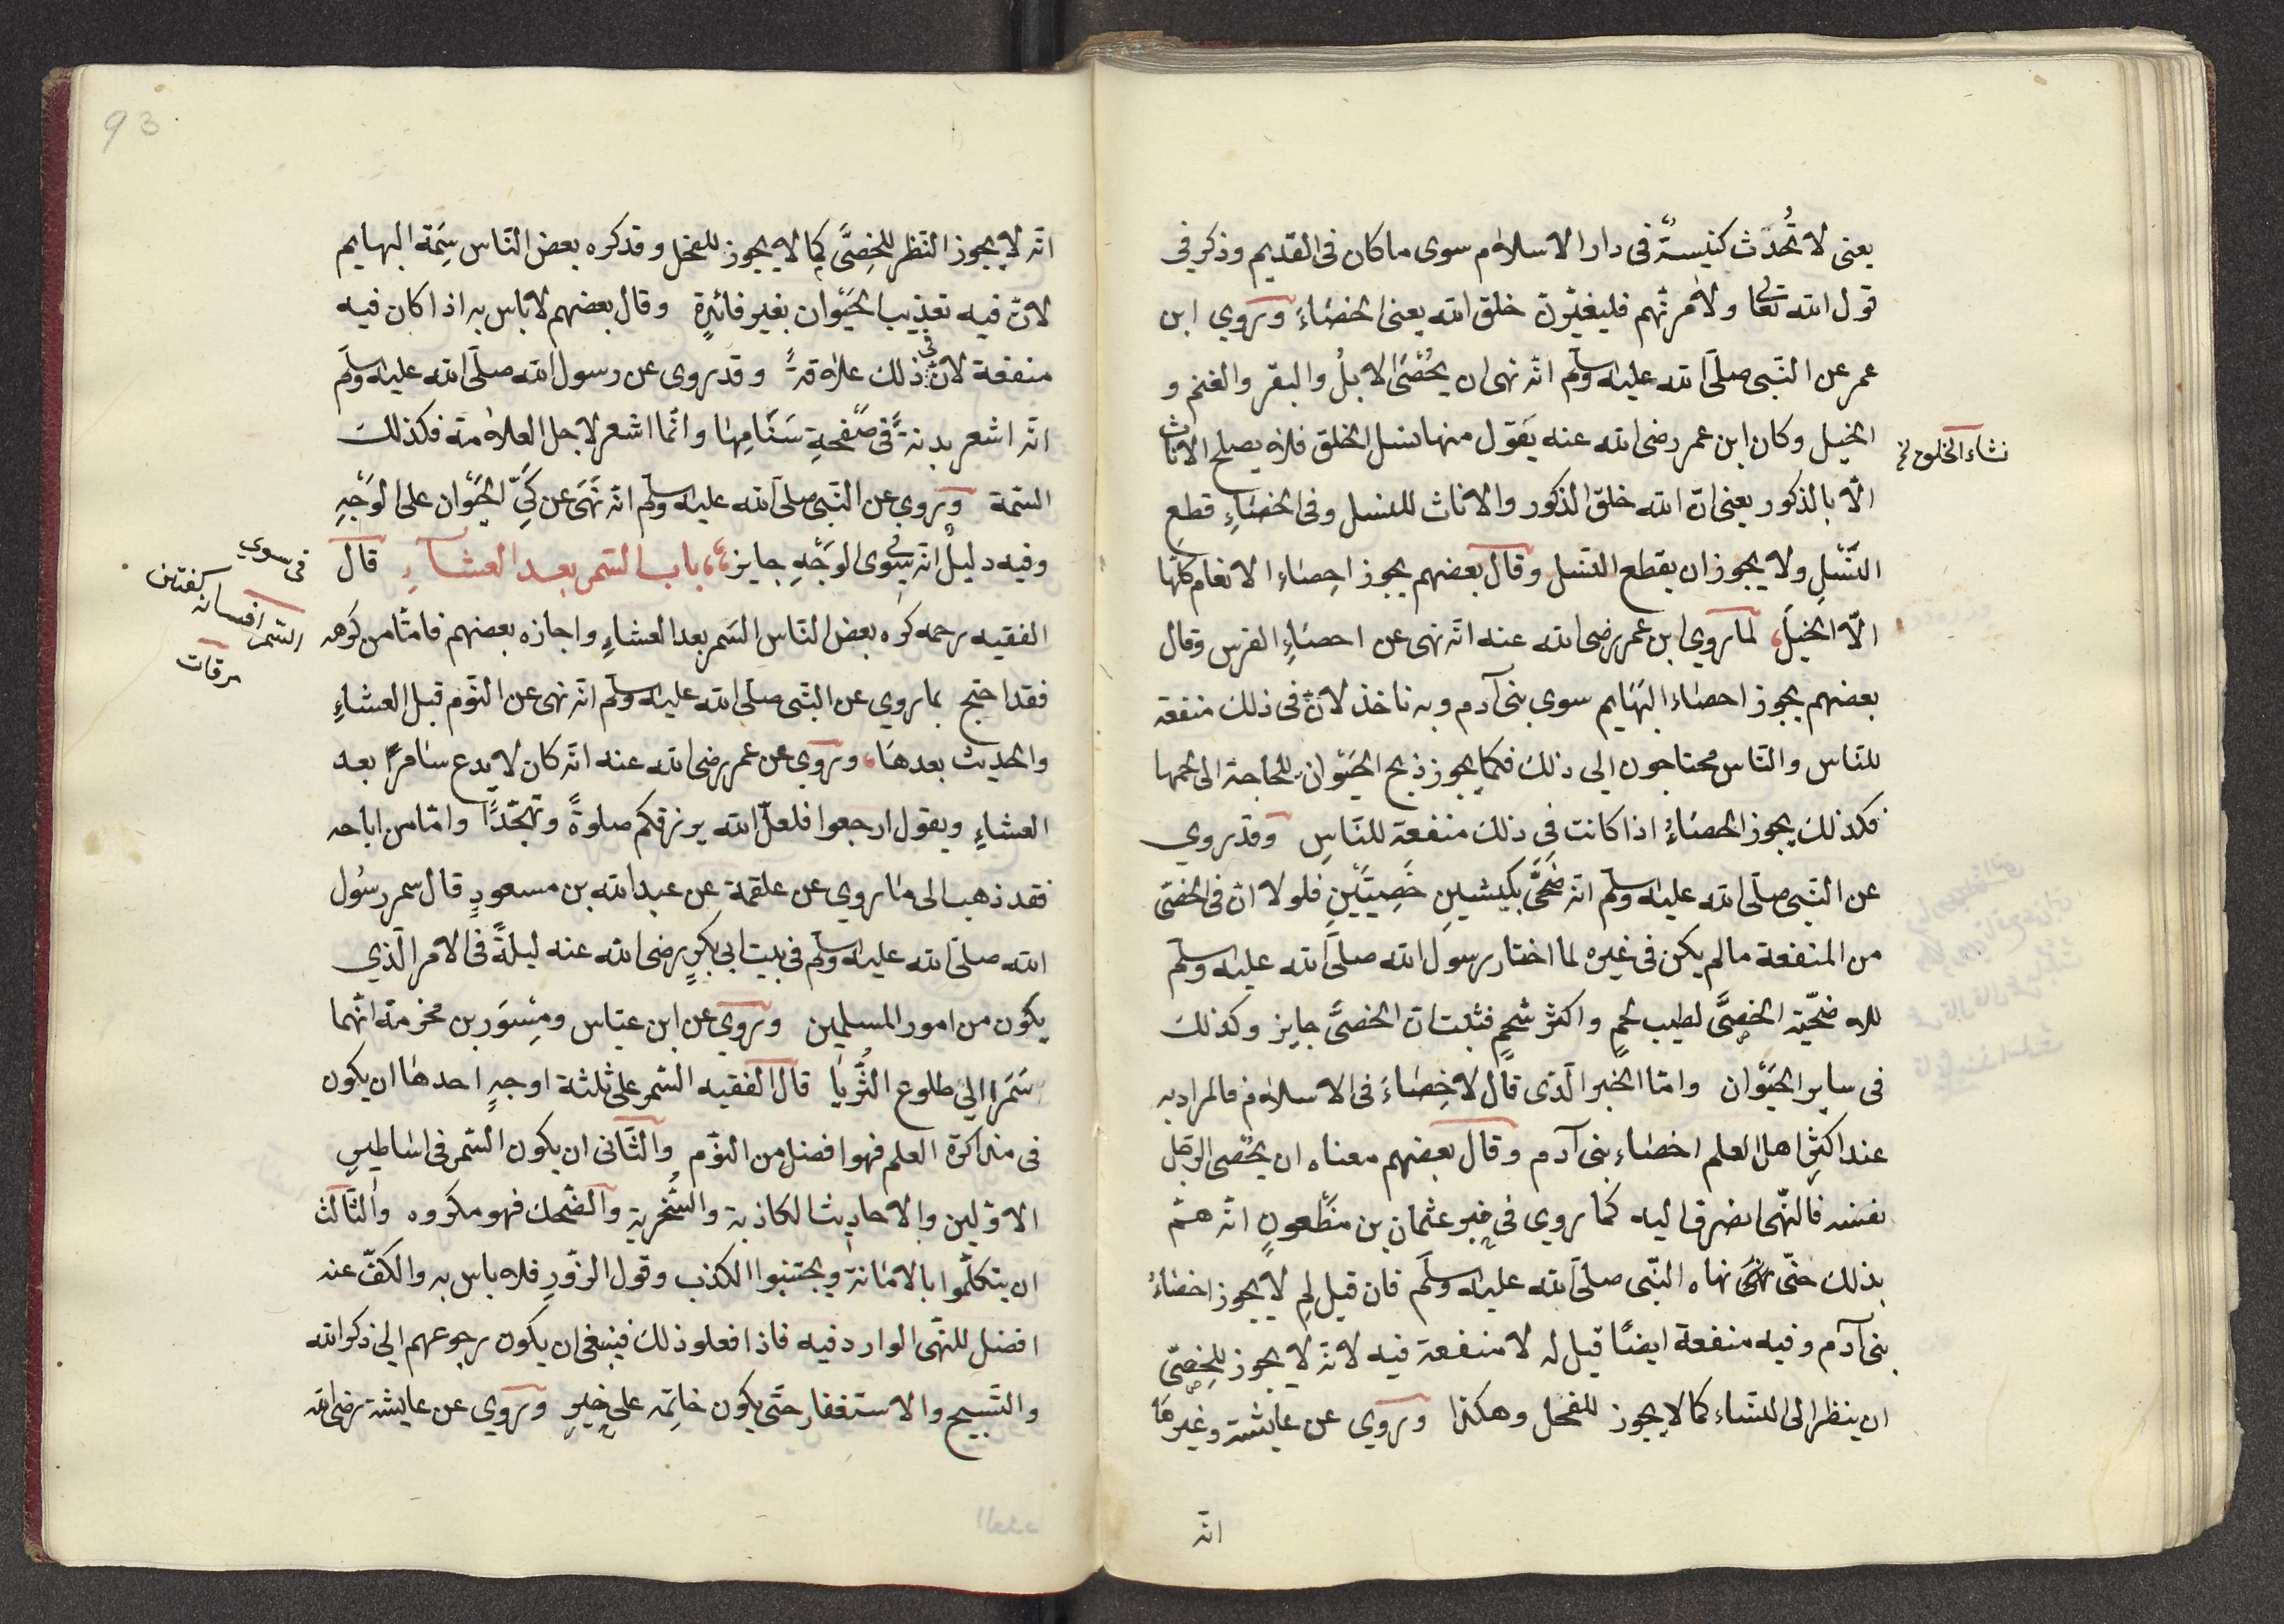 يعنى لا تُحدَث كنيسةً فى دار الاسلام سوى ما كان فى القديم وذكر في
قول الله تعالى ولآمرنّهم فليغيّرنّ خلق الله يعنى الخصاءَ وروي ابن
عمر عن النّبى صلّى الله عليه وسلّم انّه نهى ان يُخصَى الابلُ والبقر والغنم و
الخيل وكان ابن عمر رضى الله عنه يقول منها نسل الخلق فلا يصلح الاناث
الّا بالذكور يعنى انّ الله خلق الذكور والاناث للنسل وفى الخصاءِ قطع
النّسْلِ ولا يجوز ان يقطع النسل وقال بعضهم يجوز احصاء الانعام كلّها
الّا الخيلَ لما روي ابن عمر رضى الله عنه انّه نهى عن احصاءِ الفرس وقال
بعضهم يجوز احصاء البهَايم سوي بنى آدم وبه ناخذ لانّ فى ذلك منفعة
للنّاس والنّاس محتاجون الى ذلك فكما يجوز ذبح الحيَوْان للحاجة الى لحمها
فكذلك يجوز الخصاءُ اذا كانت فى ذلك منفعة للنّاسِ وقد روي
عن النّبى صلّى الله عليه وسلّم انّه ضَحَّى بكبشينِ خَصِيّيْنِ فلولا انّ فى الخصّى
من المنفعة ما لم يكن فى غيره لما اختار رسول الله صلّى الله عليه وسلّم
للاضحّية الخصِىَّ لطيب لحمٍ واكثر شحمٍ فثبت انّ الخصىَّ جايز وكذلك
فى ساير الحيَوْان وامّا الخبر الّذى قال لا خِصَاءَ فى الاسلام فالمراد به
عند اكثرِ اهل العلم اخصاء بنى آدم وقال بعضهم معناه ان يخصى الرجل
نفسه فالنّهى انصرف اليه كما روي فى خبر عثمان بن مظْعونٍ انّه همّ
بذلك حتّى نهى نهاه النّبى صلّى الله عليه وسلّم فان قيل لِم لا يجوز اخصاءُ
بنى آدم وفيه منفعة ايضًا قيل له لا منفعة فيه لانّه لا يجوز للخِصِىّ
ان ينظر الى النساء كما لا يجوز للفحل وهكذا وروي عن عايشة وغيرها
انّه
نشاء الخلق نخ
انّه لا يجوز النّظر للخِصِىَّ كما لا يجوز للفحل وقد كره بعض النّاس سِمَة البهايم
لانّ فيه تعذيب الحيَوْان بغير فائدةٍ وقال بعضهم لا باس به اذا كان فيه
منفعة لانّ فى ذلك علاقةً وقد روى عن رسول الله صلّى الله عليه وسلّم
انّه اشعر بدنةً فى صَفحةِ سَنَامِها وانّما اشعر لاجل العلامة فكذلك
السّمة وروي عن النّبى صلّى الله عليه وسلّم انّه نَهَى عن كَىِّ الحَيَوْان على الوَجْهِ
وفيه دليلٌ انّه فى سِوى الوَجْهِ جايز باب السّمر بعد العشاءِ قال
الفقيه رحمه كره بعض النّاس السَمر بعد العشاءِ واجازه بعضهم فامّا من كرهه
فقد احتج بما روي عن النّبى صلّى الله عليه وسلّم انّه نهى عن النّوم قبل العشاءِ
والحديث بعدهَا وروى عن عمر رضى الله عنه انّه كان لا يدع سَامرًا بعد
العشاءِ ويقول ارجعوا فلعلّ الله يرزقكم صلوةً وتهجّدًا وامّا من اباحه
فقد ذهب الى ما روي عن علقمة عن عبد الله بن مسعودٍ قال سمر رسُول
الله صلّى الله عليه وسلّم فى بيت ابى بكرٍ رضى الله عنه ليلةً فى الامر الّذي
يكون من امور المسلمين وروي عن ابن عبّاس ومِسْوَر بن مخرمة انّهما
سَمَرا الى طلوع الثُّريّا قال الفقيه السّمر على ثلثة اوجهٍ احدها ان يكون
فى مذاكرة العلم فهو افضل من النّوم والثّانى ان يكون السّمر فى اسَاطيرِ
الاوّلين والاحاديث الكاذبة والسُّخرية والضّحك فهو مكروه والثّالث
ان يتكلّموا بالامانة ويجتنبوا الكذب وقول الزّورِ فلا باس به والكفّ عنه
افضل للنّهى الوارد فيه فاذا فعلو ذلك فينبغى ان يكون رجوعهم الى ذكر الله
والتّسبيح والاستغفار حتّى يكون خاتِمه على خيرٍ وروي عن عايشة رضى الله
فى سوى
السّمر افسانه كفتن
مرقات
93